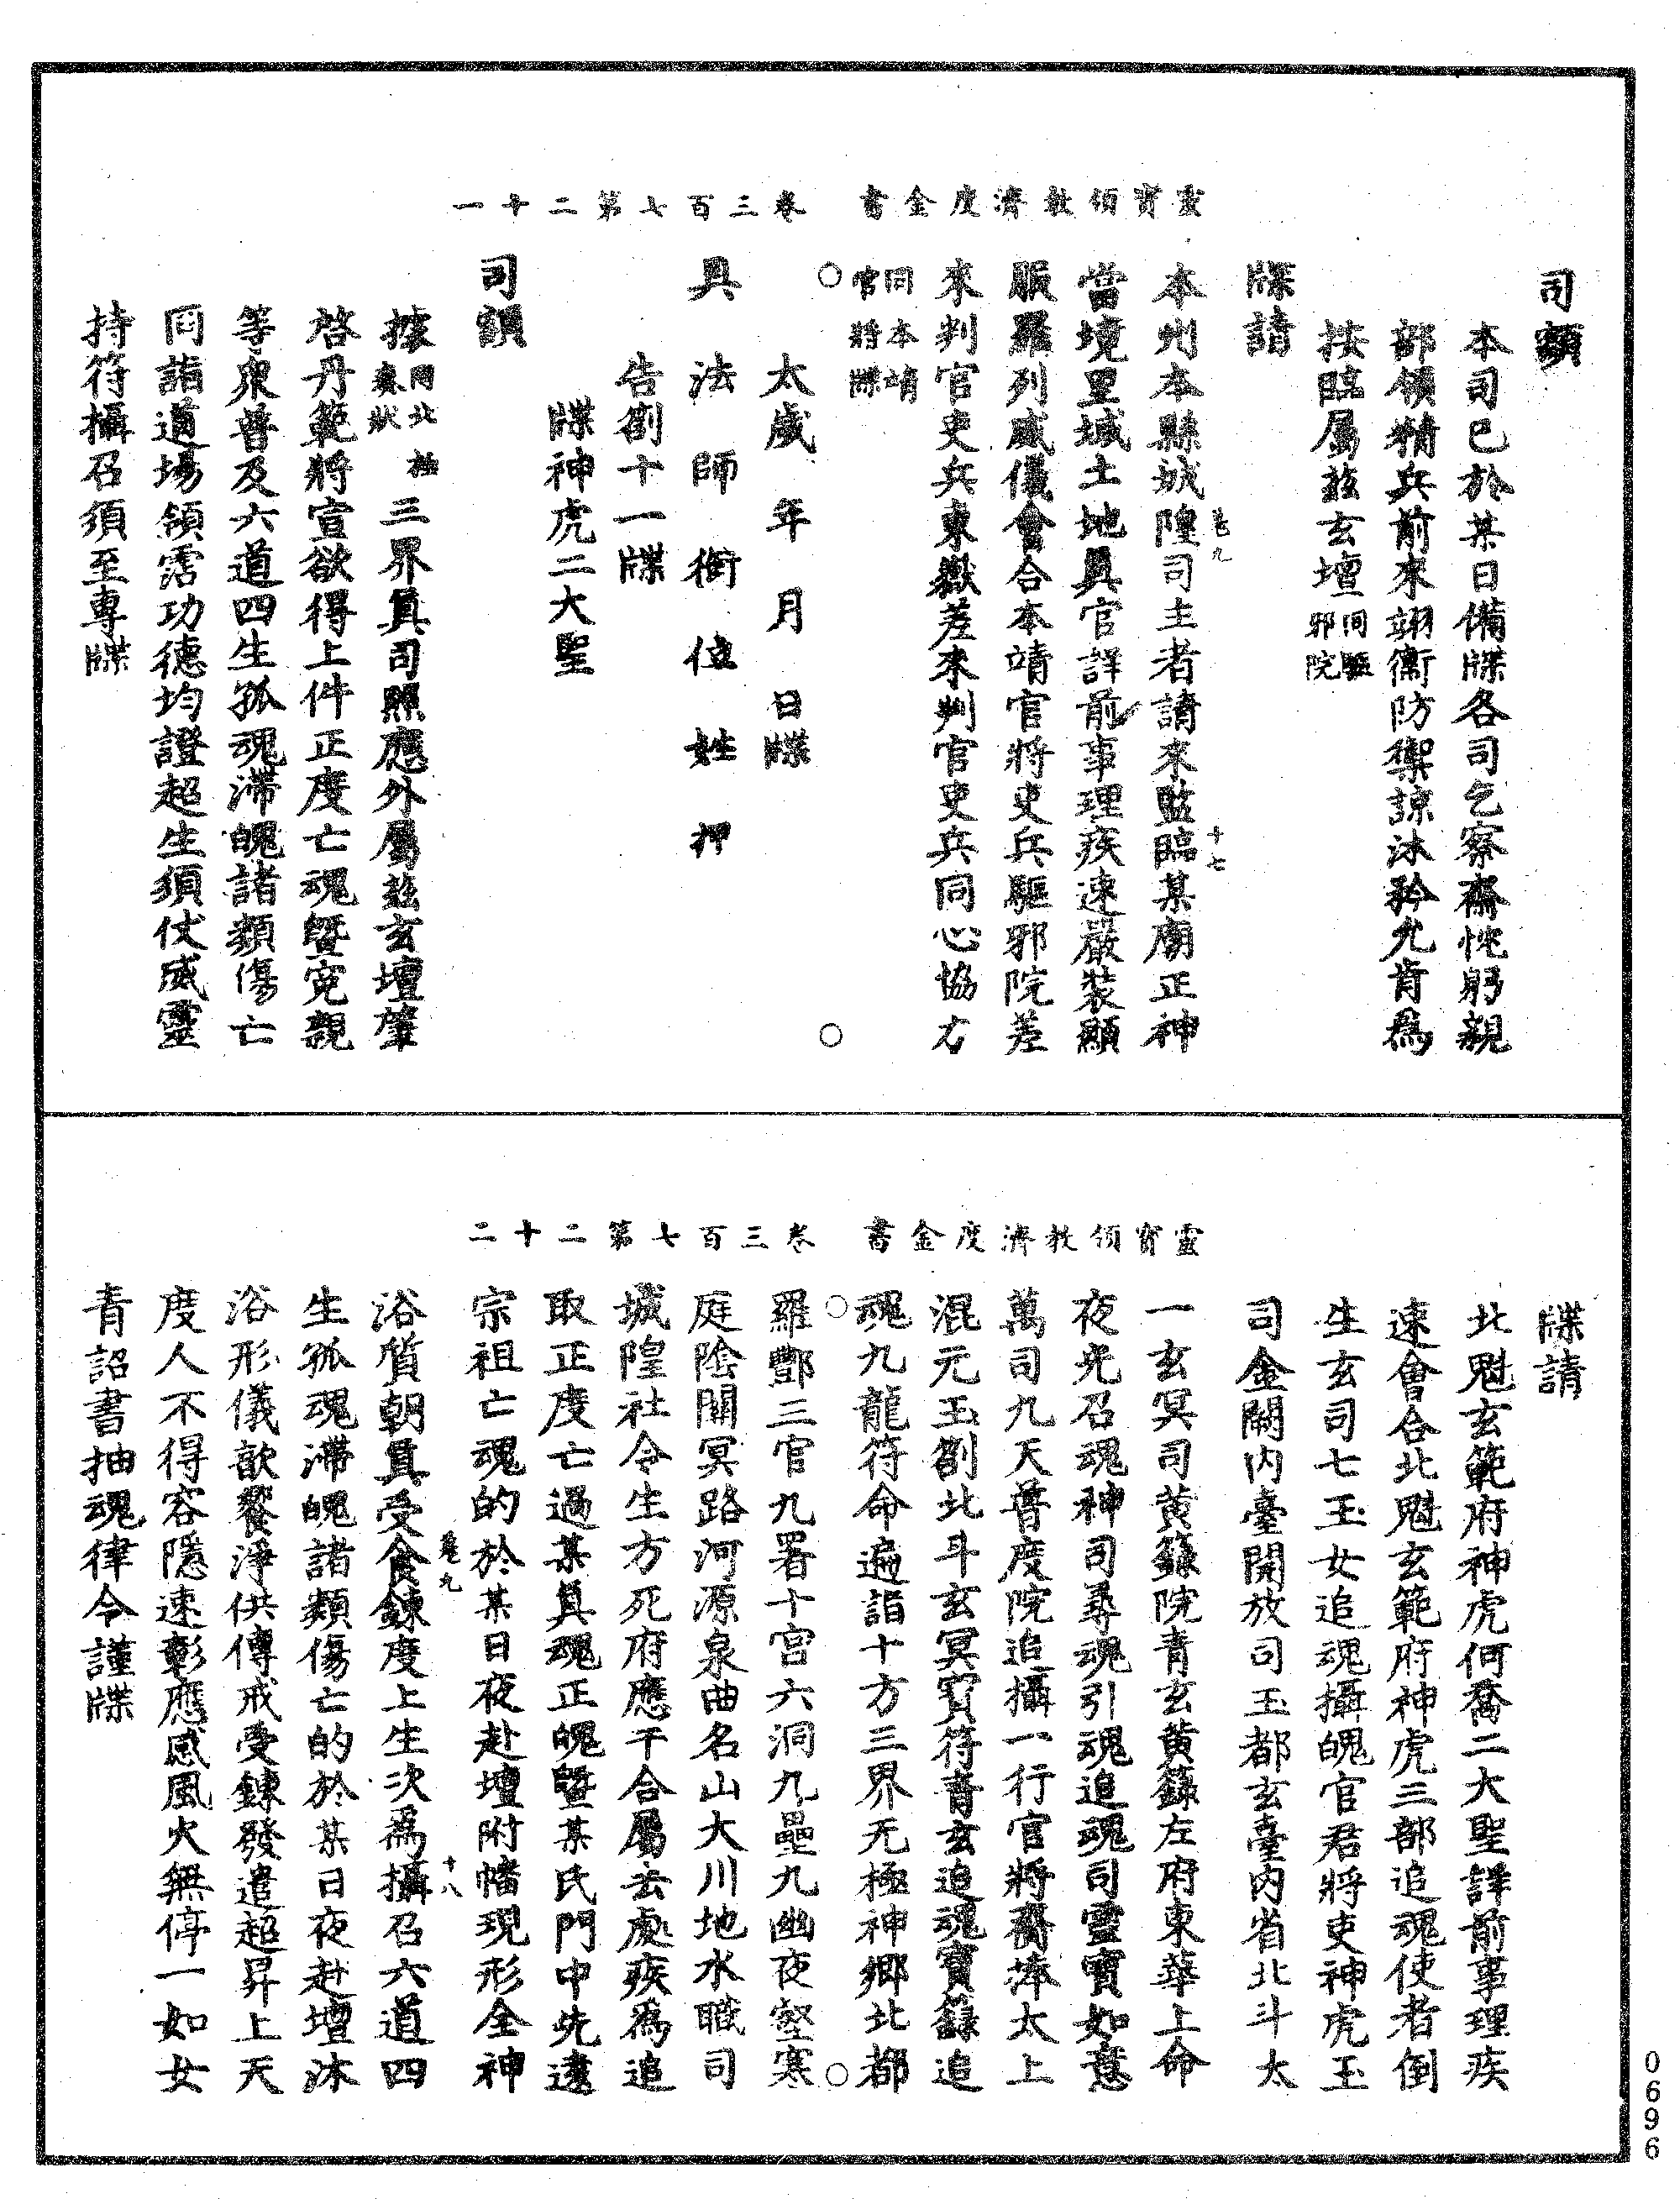 靈寶領教濟度金書　卷三百七第二十一
司額
本司已於某日備牒各司乞察齋悃躬親
部領精兵前來翊衛防禦諒沐矜允肯為
按臨屬茲玄壇同驅邪院
牒請
本州本縣城隍司主者請來監臨某廟正神
當境里域土地真官詳前事理疾速嚴裝顯
服羅列威儀會合本靖官將吏兵驅邪院差
來判官吏兵東嶽差來判官吏兵同心協力
同本靖官將牒
太歲　年　月　日牒
具　法　師　銜　位　姓　押
告劄十一牒
牒神虎二大聖
司額
據同北極齋狀三界真司照應外屬茲玄壇肇
啓丹範將宣欲得上件正度亡魂暨寃親
等衆普及六道四生孤魂滯魄諸類傷亡
同詣道場領霑功德均證超生須仗威靈
持符攝召須至專牒
卷九
十七
靈寶領教濟度金書　卷三百七第二十二
牒請
北魁玄範府神虎何喬二大聖詳前事理疾
速會合北魁玄範府神虎三部追魂使者倒
生玄司七玉女追魂攝魄官君將吏神虎玉
司金闕內臺開放司玉都玄臺內省北斗太
一玄冥司黃籙院青玄黃籙左府東華上命
夜光召魂神司尋魂引魂追魂司靈寶如意
萬司九天普度院追攝一行官將齎捧太上
混元玉劄北斗玄冥寶符青玄追魂寶籙追
魂九龍符命遍詣十方三界无極神鄉北都
羅酆三官九署十宮六洞九壘九幽夜壑寒
庭陰關冥路河源泉曲名山大川地水職司
城隍社令生方死府應干合屬去處疾為追
取正度亡過某真魂正魄暨某氏門中先遠
宗祖亡魂的於某日夜赴壇附幡現形全神
浴質朝真受食鍊度上生次為攝召六道四
生孤魂滯魄諸類傷亡的於某日夜赴壇沐
浴形儀歆饗淨供傳戒受鍊發遣超昇上天
度人不得容隱速彰應感風火無停一如女
青詔書抽魂律令謹牒
卷九
十八
0696